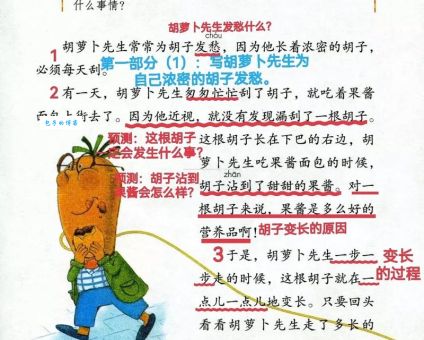 什么事情?
胡萝卜先生发愁什么?
chóu
1 胡萝卜先生常常为胡子发愁,因为他长着浓密的胡子,
必须每天刮。第一部分(1):写胡萝卜先生为
自己浓密的胡子发愁。
2 有一天,胡萝卜先生匆匆忙忙刮了胡子,就吃着果酱
面包上街去了。因为他近视,就没有发现漏刮了一根胡子。
预测:这根胡子
还会发生什么事?
这根胡子长在下巴的右边,胡
萝卜先生吃果酱面包的时候,
zhān
预测:胡子沾到
果酱会怎么样?
胡子沾到了甜甜的果酱。对一
根胡子来说,果酱是多么好的
营养品啊!胡子变长的原因
3 于是,胡萝卜先生一步一
步走的时候,这根胡子就在一
变长
的过程
点儿一点儿地变长。只要回头
看看胡萝卜先生走了多长的